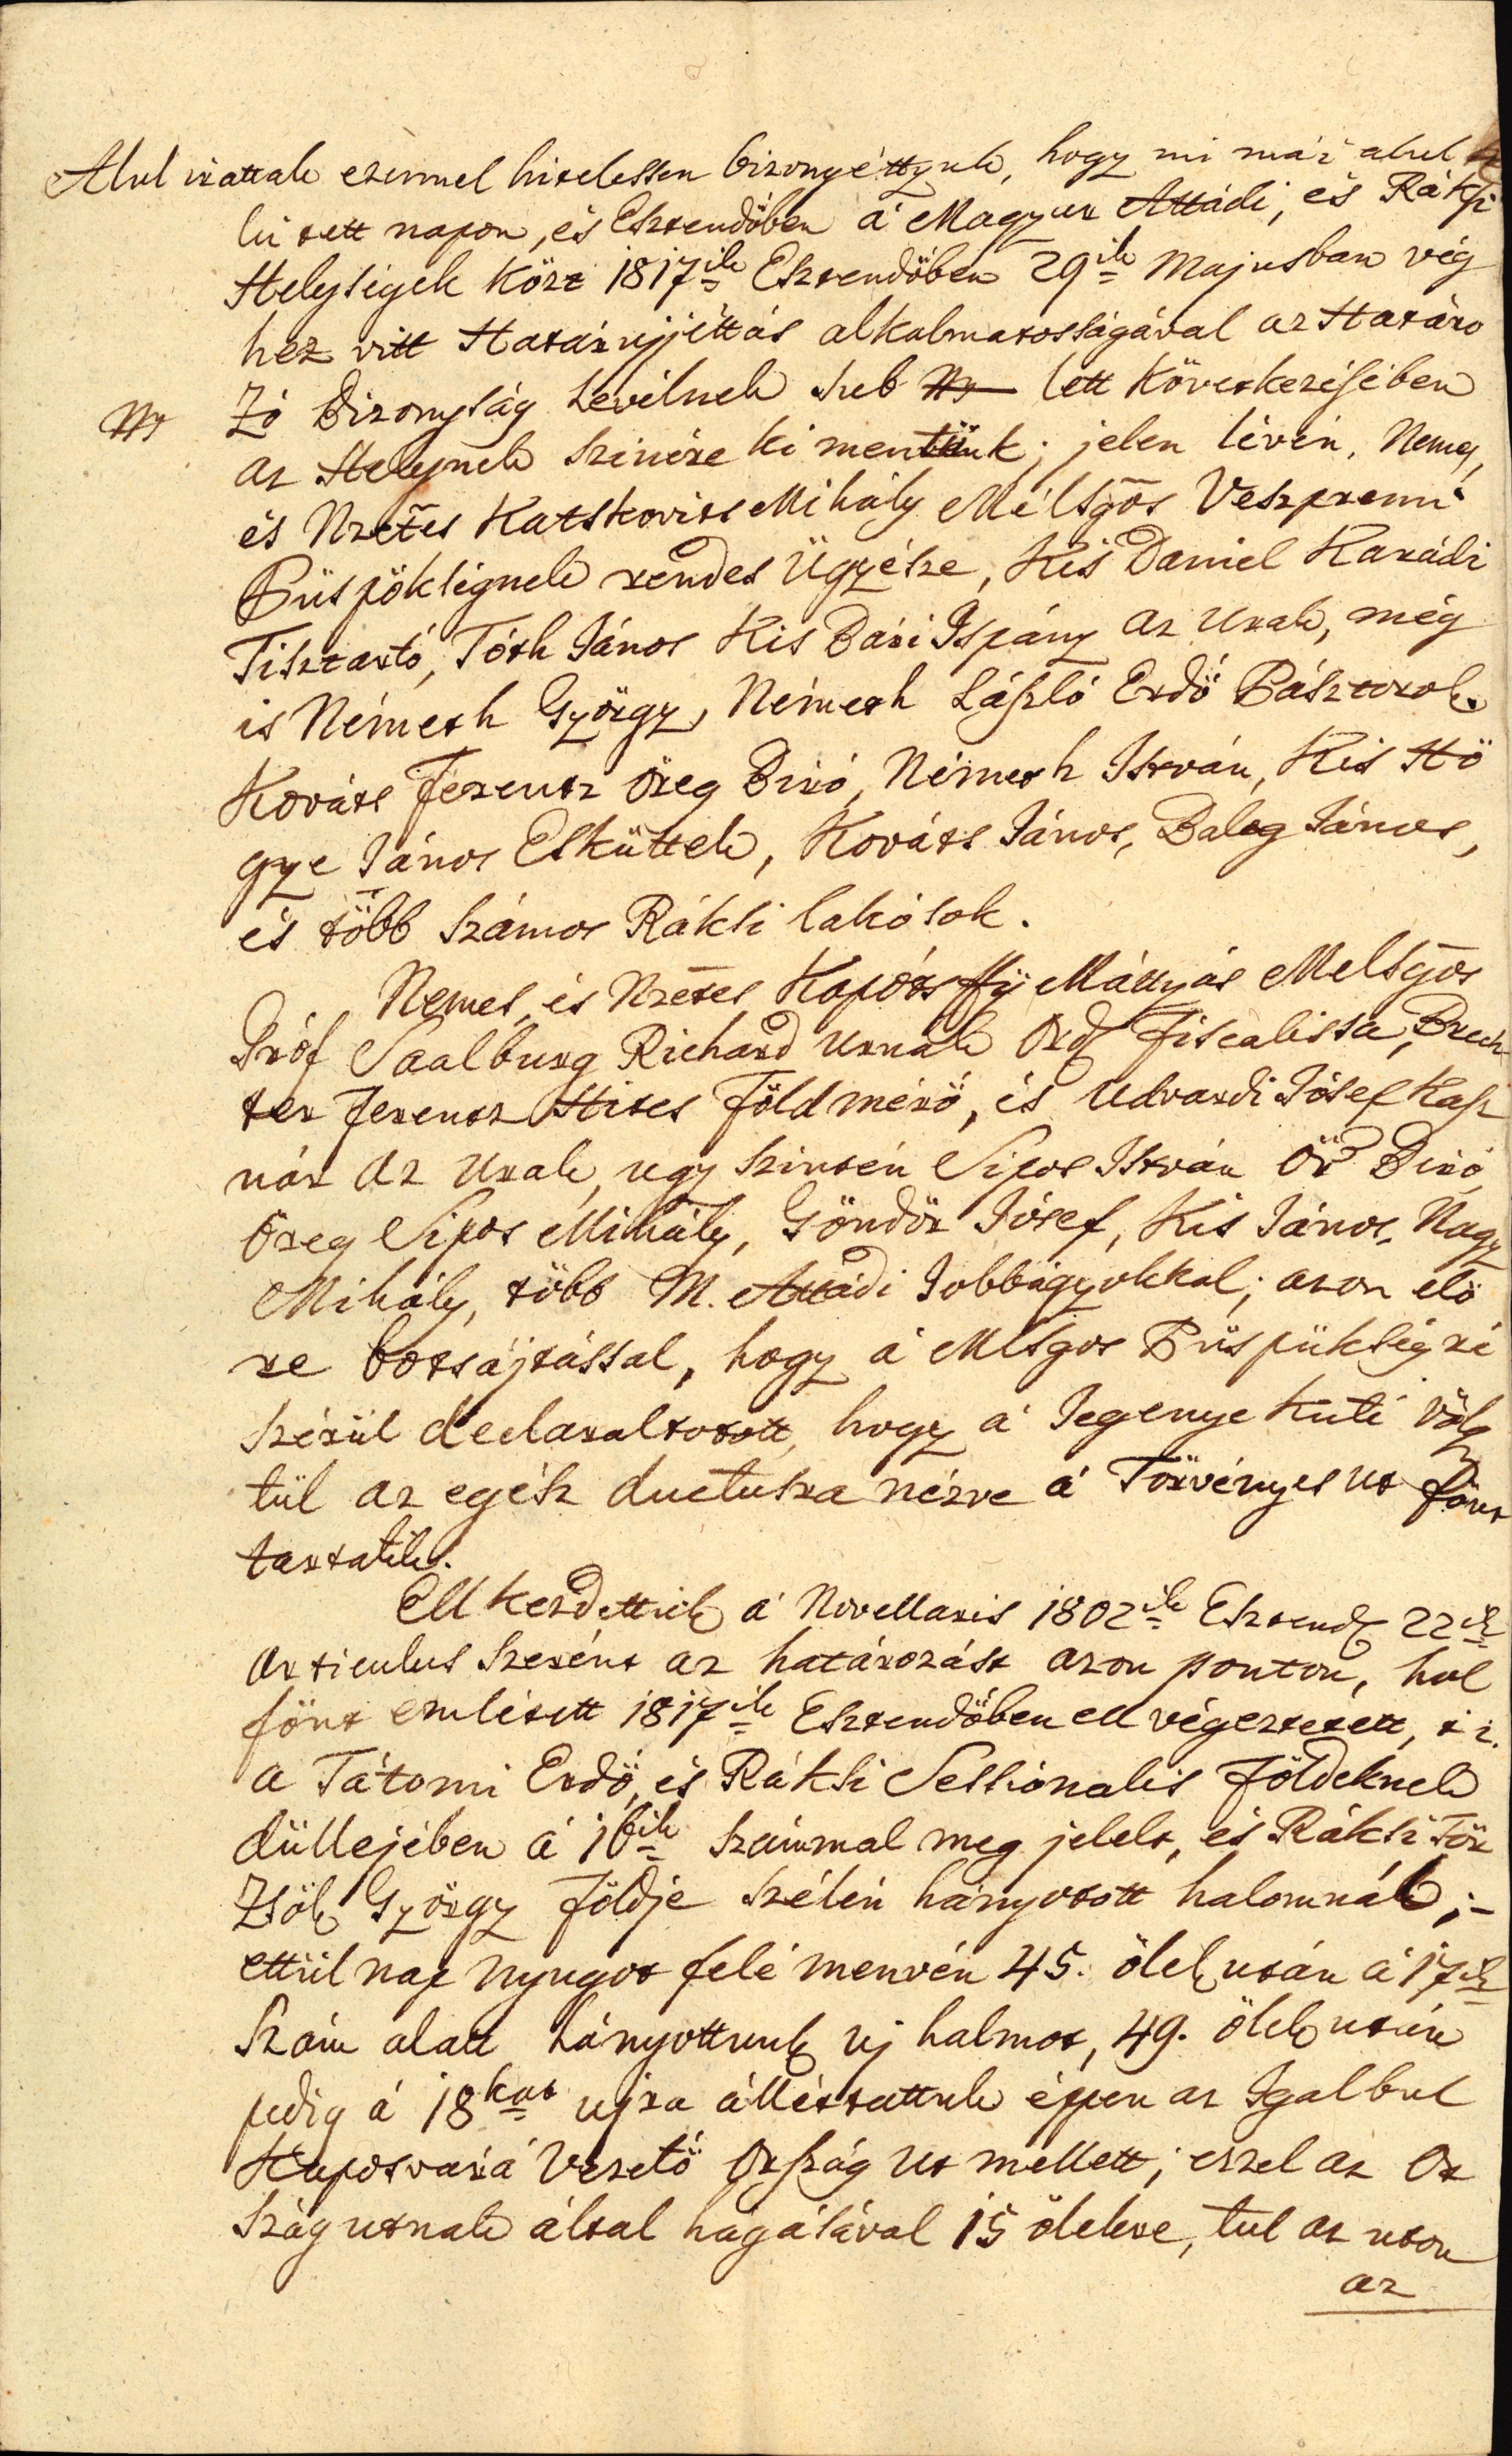 Alul irattak ezennel hitelessen bizonyéttyuk, hogy mi már alul ki
lü tett napon, és Esztendöben á Magyar Attádi, és Ráksi
Helységek közt 1817ik Esztendöben 29ik Majusban vég
hez vitt Határujjéttás alkalmatosságával az Határo
zó Bizonyság Levélnek Sub lett következésében
az Helynek szinére ki mentünk; jelen lévén, Nemes,
és Nzetes Katskovits Mihály Méltsgos Veszpremi
Püspökségnek rendes Ügyésze, Kis Daniel Karádi
Tisztartó, Tóth János Kis Bári Ispány az Urak, még
is Németh György, Németh László Erdö Pásztorok.
Kováts Ferentz Öreg Biró, Németh István, Kis Hö
gye János Esküttek, Kováts János, Balog János,
és több számos Ráksi lakósok.
Nemes, és Nzetes Kapótsffÿ Máttyás Meltsgos
Gróf Saalburg Richard Urnak Ord Fiscalissa, Brech
ter Ferentz Hites Földmérö, és Udvardi Jósef Kasz
nár Az Urak, ugy szintén Sipos István Ör Biró,
Öreg Sipos Mihály, Göndör Jósef, Kis János, Nagy
Mihály, több M. Attádi Jobbágyokkal; azon elö
re botsájtással, hogy á Mltsgos Püspükség ré
szérül declaraltatott, hogy á Jegenye Kuti völgy
tül az egész ductusra nézve á Törvényes ut fönt
tartatik.
Ell kezdettük á Novellaris 1802ik Esztend 22ik
Articulus szerént az határozást azon ponton, hol
fönt emlétett 1817ik Esztendöben ell végeztetett, t i.
a Tátomi Erdö, és Ráksi Sessionalis Földeknek
düllejében á 16ik számmal meg jelelt, és Ráksi Tör
zsök György Földje szélén hányatott halomnál;-
ettül nap nyugot felé menvén 45. ölek után á 17ik
Szám alatt hányottunk uj halmot, 49. ölek után
pedig á 18kat ujra álléttattuk éppen az Igalbul
Kaposvárá vezetö Ország ut mellett; ezzel az Or
szág utnak által hágásával 15 ölekre, tul az uton
az